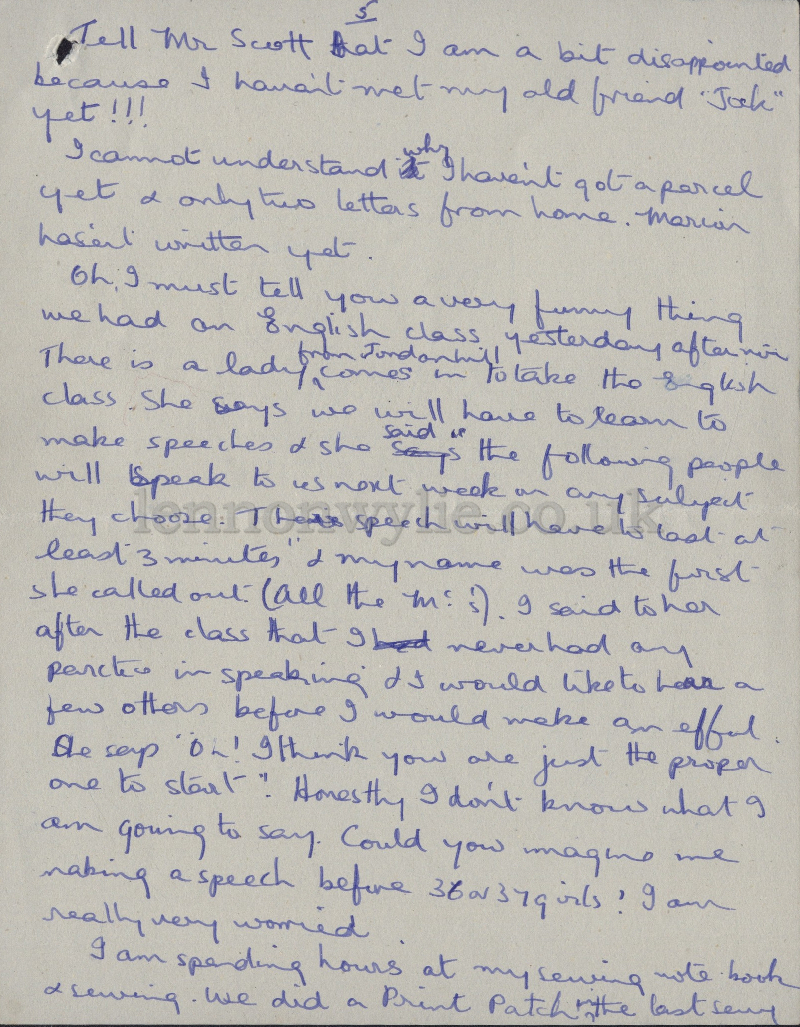 5
Tell Mr Scott that I am a bit disappointed
because I havn't met my old friend "Jock"
yet!!!
I cannot understand why I haven't got a parcel
yet & only two letters from home. Marion
hasent written yet.
Oh, I must tell you a very funny thing
we had an English class yesterday afternoon
There is a lady from Jordanhill comes in to take the English
class. She says we will have to learn to
make speeches & she said "the following people
will speak to us next week on any subject
they choose. There speech will have to last at
least 3 minutes" & my name was the first
she called out. (All the Mc's). I said to her
after the class that I never had any
parctice in speaking & I would like to hear a
few others before I would make an effort.
She says "Oh! I think you are just the proper
one to start". Honestly I don't know what I
am going to say. Could you imagine me
making a speech before 36 or 37 girls! I am
really very worried
I am spending hours at my sewing note book
& sewing. We did a Print Patch in the last sewing
lennonwylie.co.uk